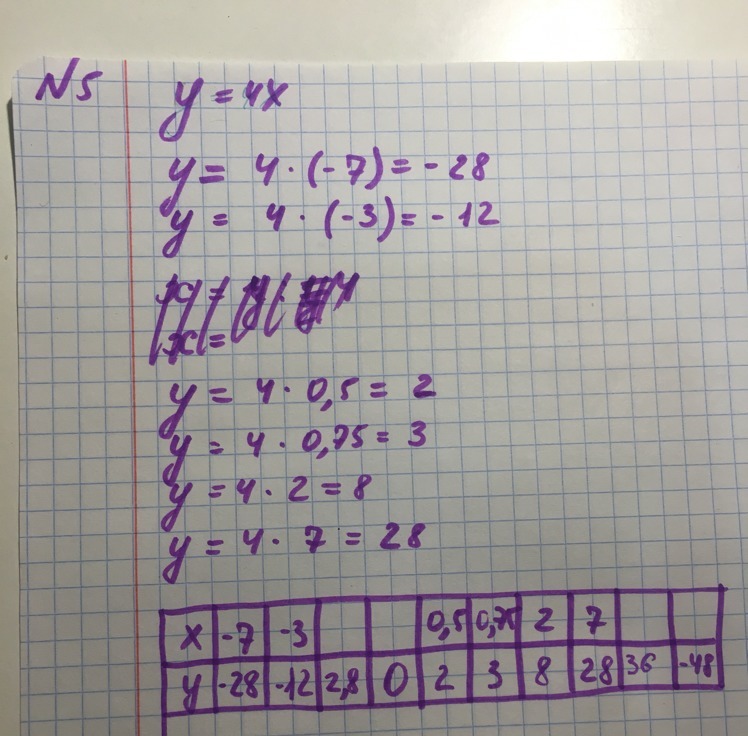 N5
y = 4x
y = 4 · (-7) = - 28
y = 4 · (-3) = - 12
x =
y = 4 · 0,5 = 2
y = 4 · 0,75 = 3
y = 4 · 2 = 8
y = 4 · 7 = 28
x -7 -3 0,5 0,75 2 7
y -28 -12 2,8 0 2 3 8 28 36 -48